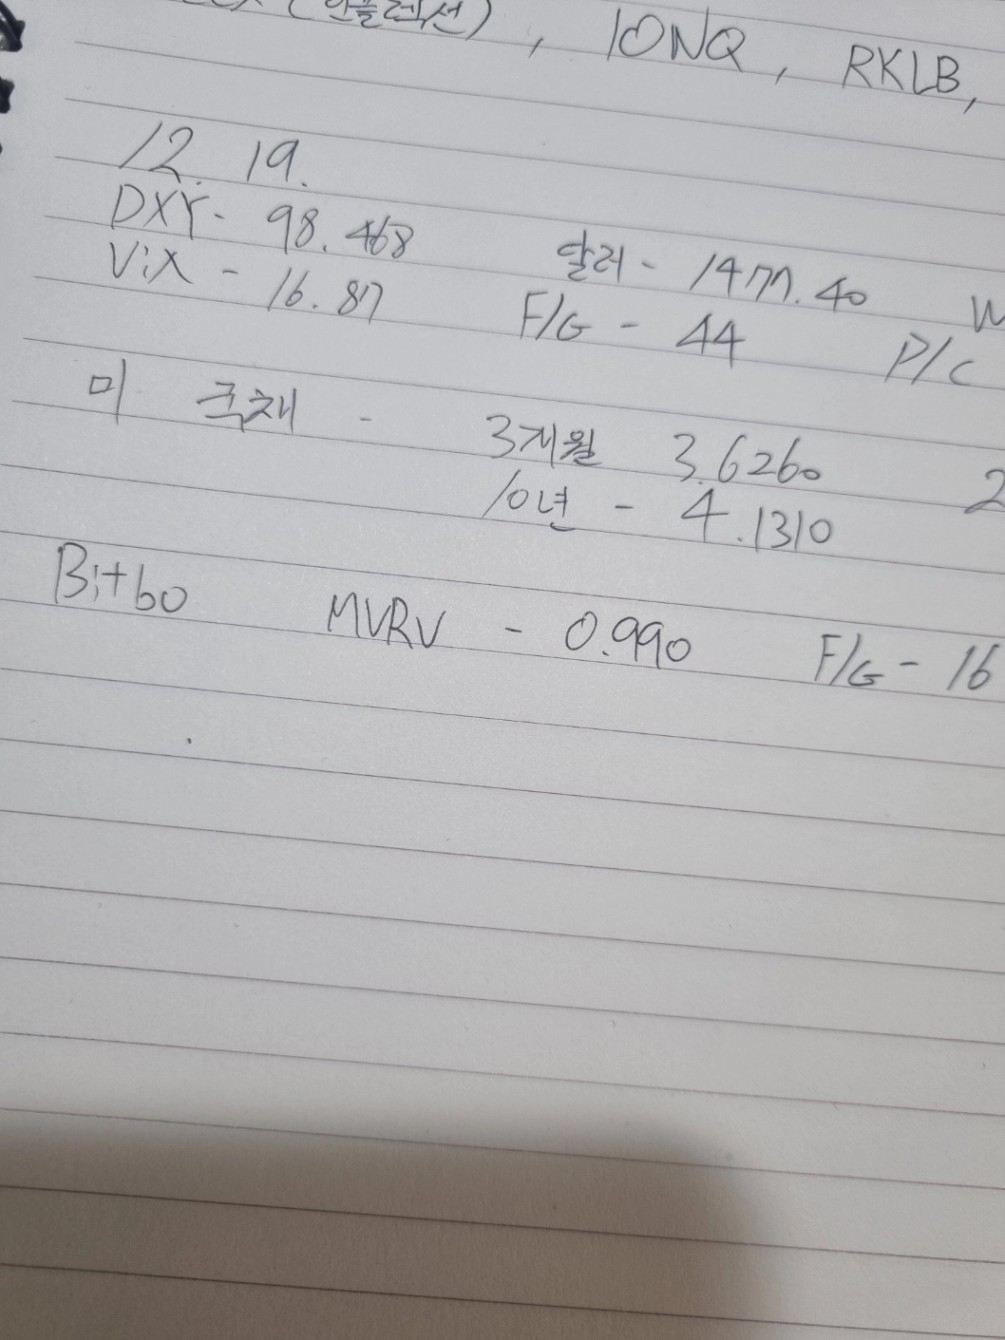 (인플렉션), IONQ, RKLB,
12. 19.
DXY - 98.468 달러 - 1477.40
ViX - 16.87 F/G - 44 P/C
미 국채 - 3개월 3.6260 2
10년 - 4.1310
Bitbo MVRV - 0.990 F/G - 16